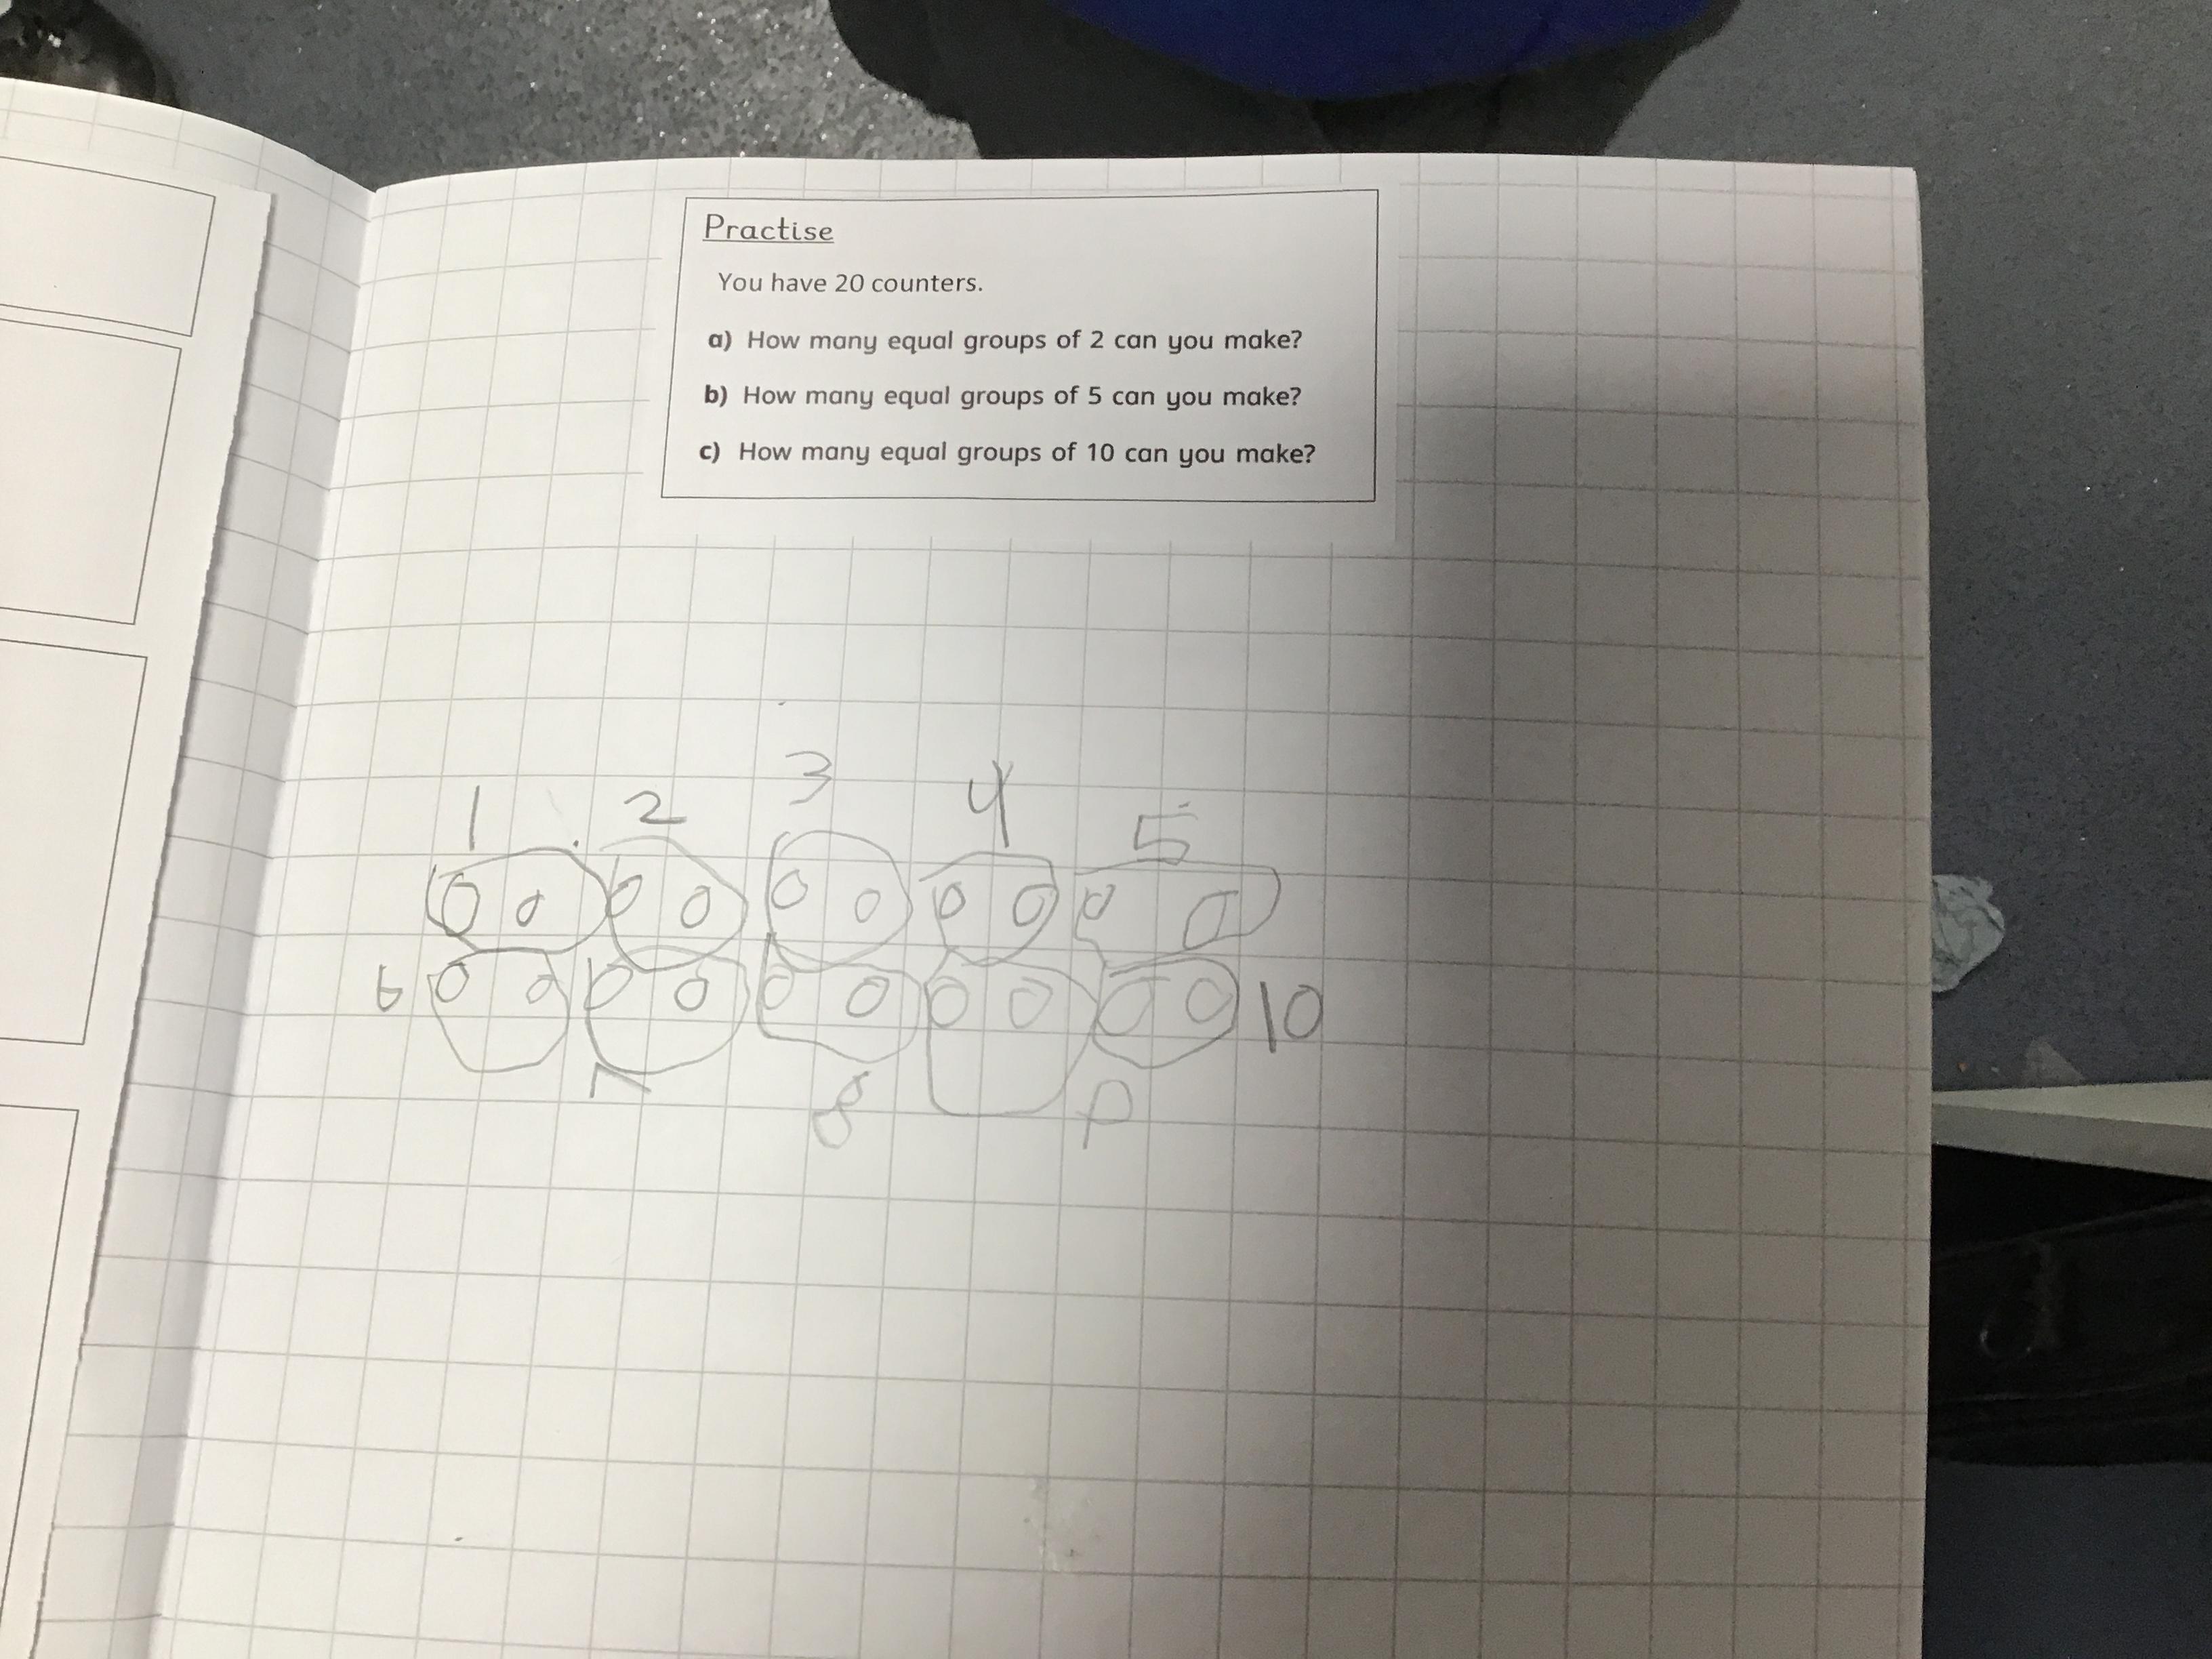 Practise
You have 20 counters.
a) How many equal groups of 2 can you make?
b) How many equal groups of 5 can you make?
c) How many equal groups of 10 can you make?
1 2 3 4 5
6 10
7 8 9